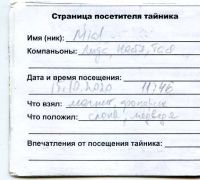 Страница посетителя тайника
Имя (ник): Mid
Компаньоны: Лиза, Настя, Тася
Дата и время посещения:
17.10.2020 11:46
Что взял: магнит,
Что положил: слона,
Впечатления от посещения тайника: